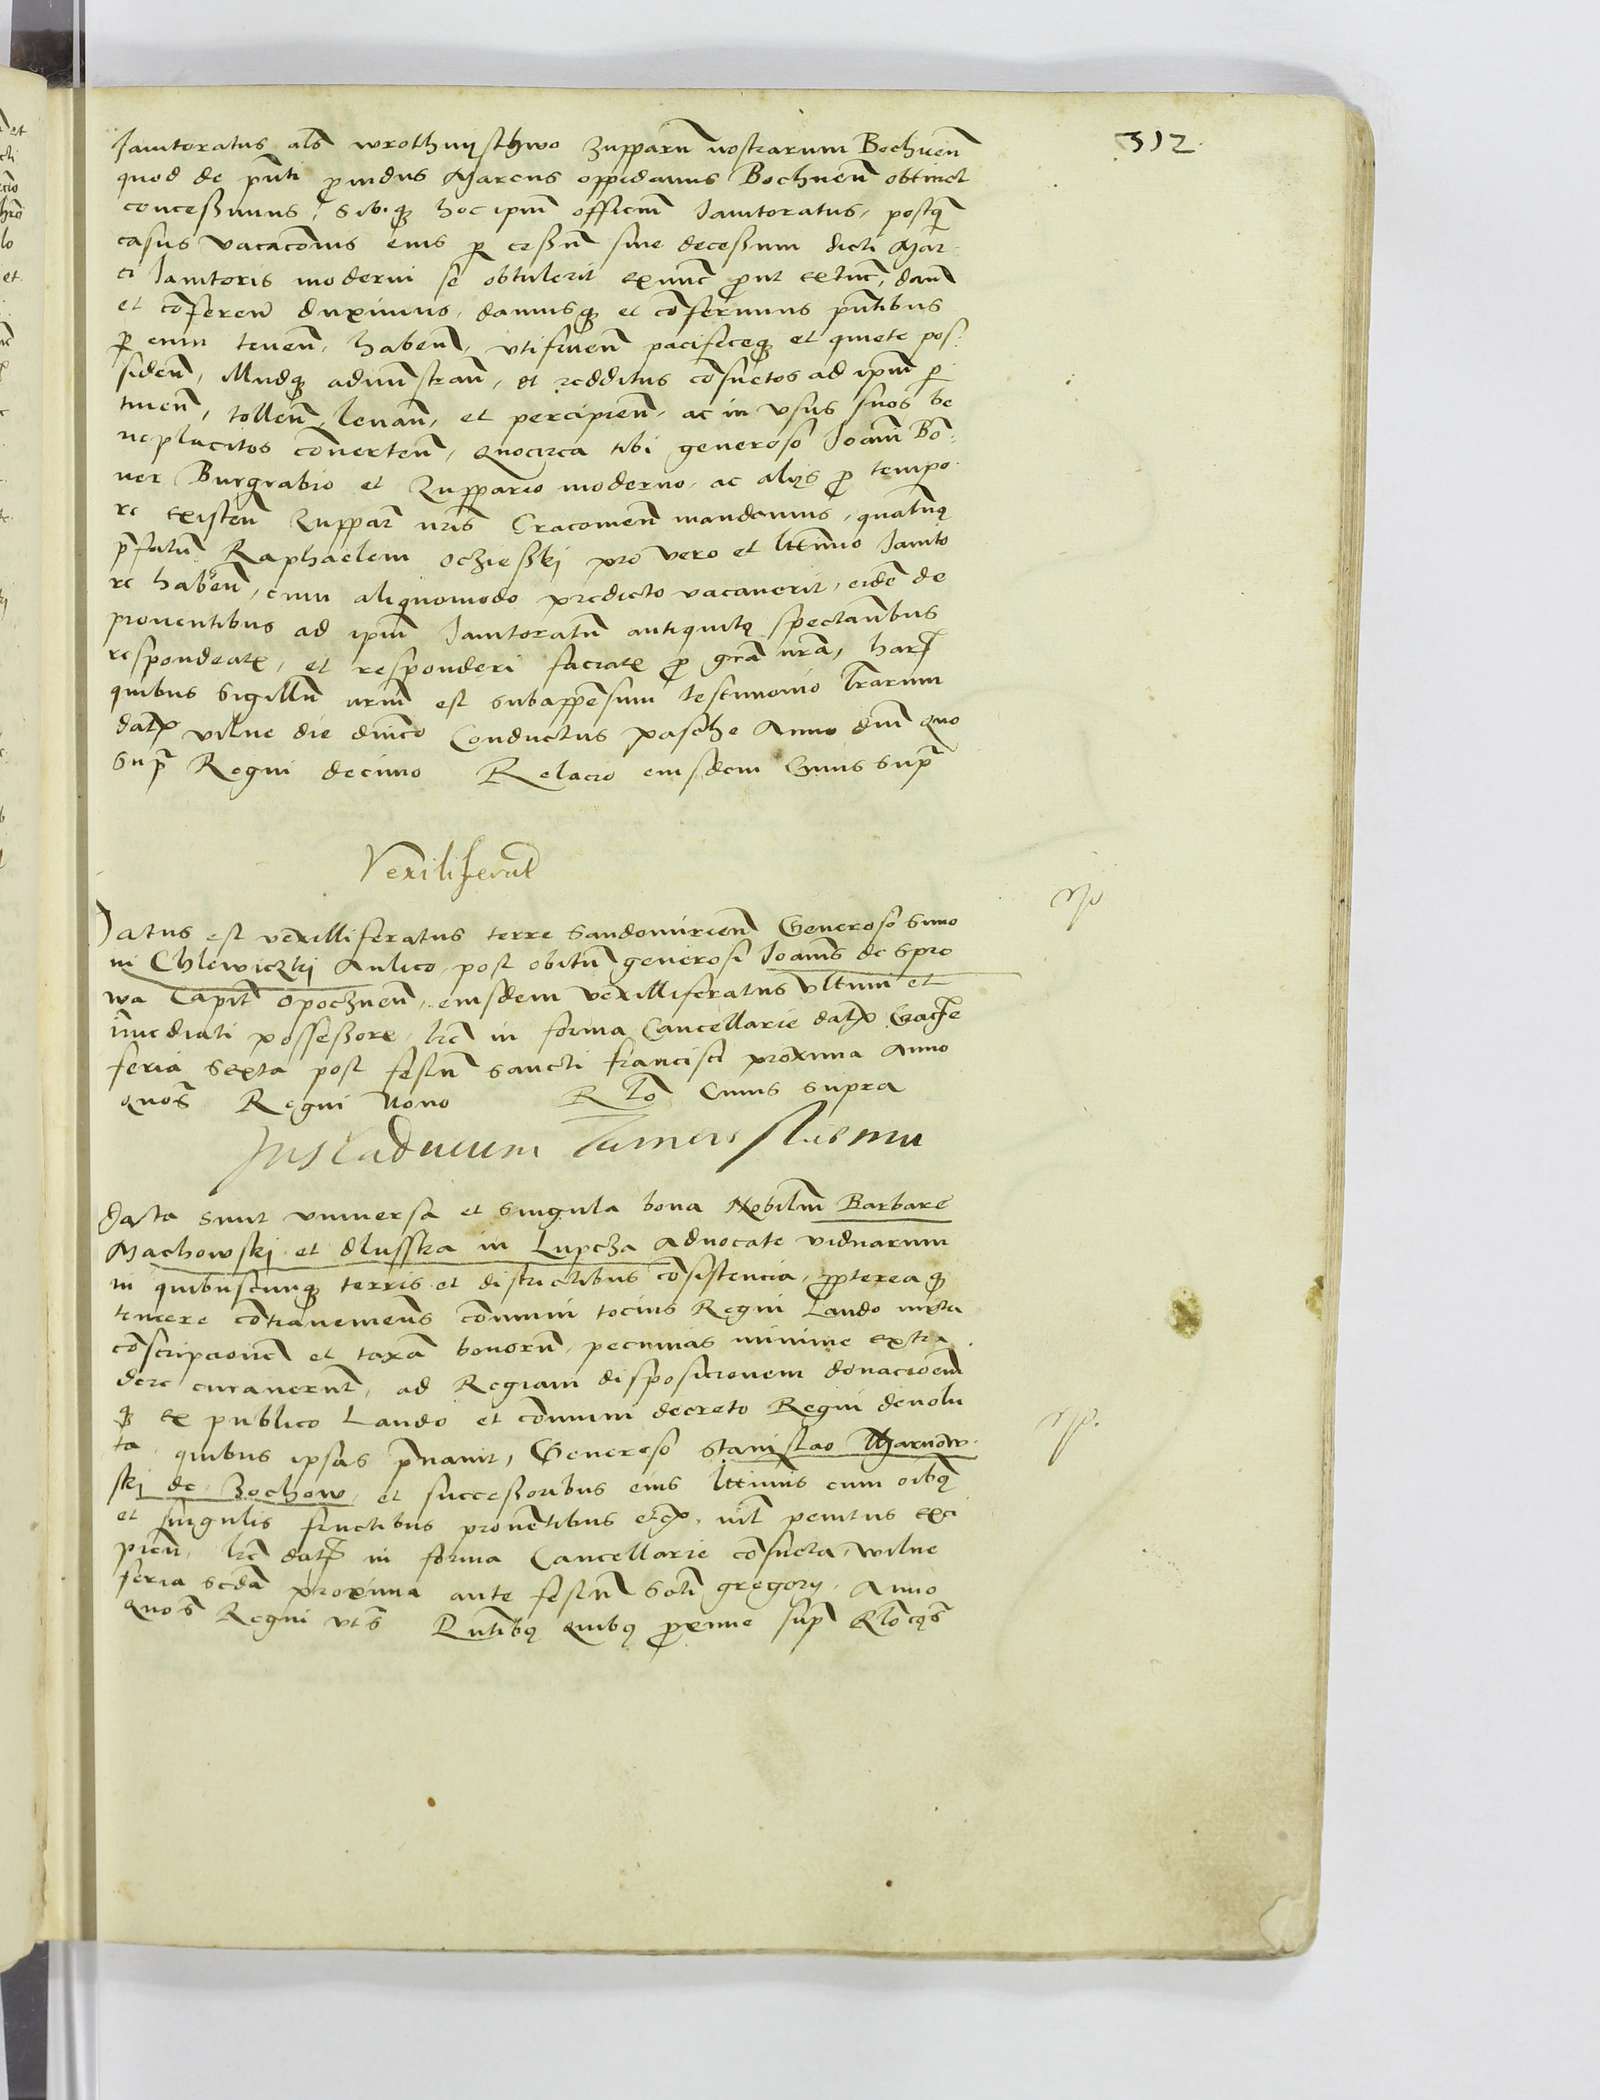 312.
Janitoratus als wrothnysthwo Zupparu nostrarum Bochnen
quod de pnti providus Marcus oppidanus Bochnen obtinet
concessimus, sibiq hoc ipm officium Janitoratus, postq
casus vacacionis eius p cessu sive decessum dicti Mar
ci Janitoris moderni se obtulerit exnunc prout extuc, dand
et conferen duximus, damusq et conferimus pntibus
p eum tenen, haben, utifruen pacificeq et quiete pos
siden, Illudq administran, et redditus consuetos ad ipm per
tinen, tollen, levan, et percipien, ac in usus suos be
neplacitos converten, quocirca tibi generoso Joanni Bo
ner Burgrabio et Zuppario moderno, ac alijs pro tempo
re existen Zuppar nris Cracovien mandamus, quatnq
pfatu Raphaelem Oczieski pro vero et lttimo Janito
re haben, cum aliquomodo predicto vacaverit, eide de
proventibus ad ipm Janitoratu antiquitq spectantibus
respondeatis, et responderi faciatis pro gra nra, har
quibus Sigillu nrm est subappensum testimonio lrarum
dat vilne die dnico Conductus pasche Anno dni quo
supra Regni decimo Relacio eiusdem cuius supra
Vexiliferat
Datus est vexilliferatus terre Sandomirien Generoso Simo
ni Chlewiczki Aulico post obitu generosi Joannis de Spro
wa Capit Opocznen, eiusdem vexilliferatus ultimi et
immediati possessore, lre in forma Cancellarie dat Grac
feria sexta post festu sancti francisci proxima Anno
quos Regni Nono Rlo Cuius supra
Jus Caducum
Data sunt universa et singula bona Nobiliu Barbare
Machowski et dlusska in Lupcza advocate viduarum
in quibuscunq terris et districtibus consistencia, propterea q
temere contravenientes communi tocius Regni Laudo iuxta
conscripcione et taxa bonoru, pecunias minime extra
dere curaverunt, ad Regiam disposicionem donacioem
q ex publico Laudo et communi decreto Regni devolu
ta quibus ipsas pnavit, Generoso Stanislao Tharnow
ski de Zochow et successoribus eius lttimis cum oibq
et singulis fructibus proventibus etc, nil penitus exci
pien, lre dat in forma Cancellarie consueta, Wilne
feria scda proxima ante festu Scti gregorij, Anno
quos Regni uts Pntibq quibq proxime sup Rlo cqs